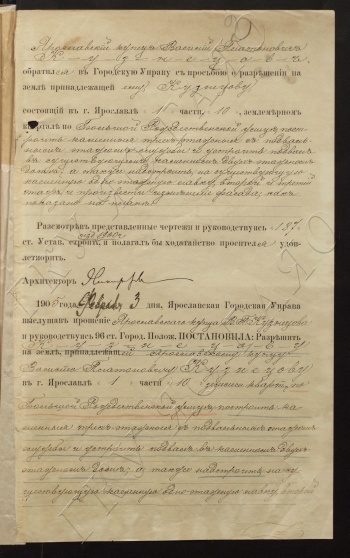 Ярославский купец Василий Платонович
К - у - з - н - е - ц - о - в - ъ
обратился въ Городскую Управу съ просьбою о разрѣшеніи на
землѣ принадлежащей ему Кузнецову
состоящей въ г. Ярославлѣ 1 части, 10, землемѣрномъ
кварталѣ по Большой Рождественской улицѣ пост-
роить каменныя трехъ-этажныя съ подваль-
нымъ этажемъ службы и устроить подвалъ
въ существующемъ каменномъ двухъ-этажномъ
домѣ, а также надстроить на существующую
каменную одно-этажную лавку второй и третій
этажъ
показано на планѣ.
Разсмотрѣвъ представленные чертежи и руководствуясь 137
ст. Устав. строит., я полагалъ бы ходатайство просителя удов-
летворить.
Архитекторъ
1905 года Февраля 3 дня, Ярославская Городская Управа
выслушавъ прошеніе Ярославскаго купца В. П. Кузнецова
и руководствуясь 96 ст. Город. Полож. ПОСТАНОВИЛА: Разрѣшить
на землѣ, принадлежащей Ярославскому купцу
Платоновичу Кузнецову
въ г. Ярославлѣ 1 части 10 землемѣр. кварт., по
Большой Рождественской улицѣ построить ка-
менныя трехъ-этажныя съ подвальнымъ этажемъ
службы и устроить подвалъ въ каменномъ двухъ-
этажномъ домѣ, а также надстроить на су-
ществующую каменную одно-этажную лавку второй